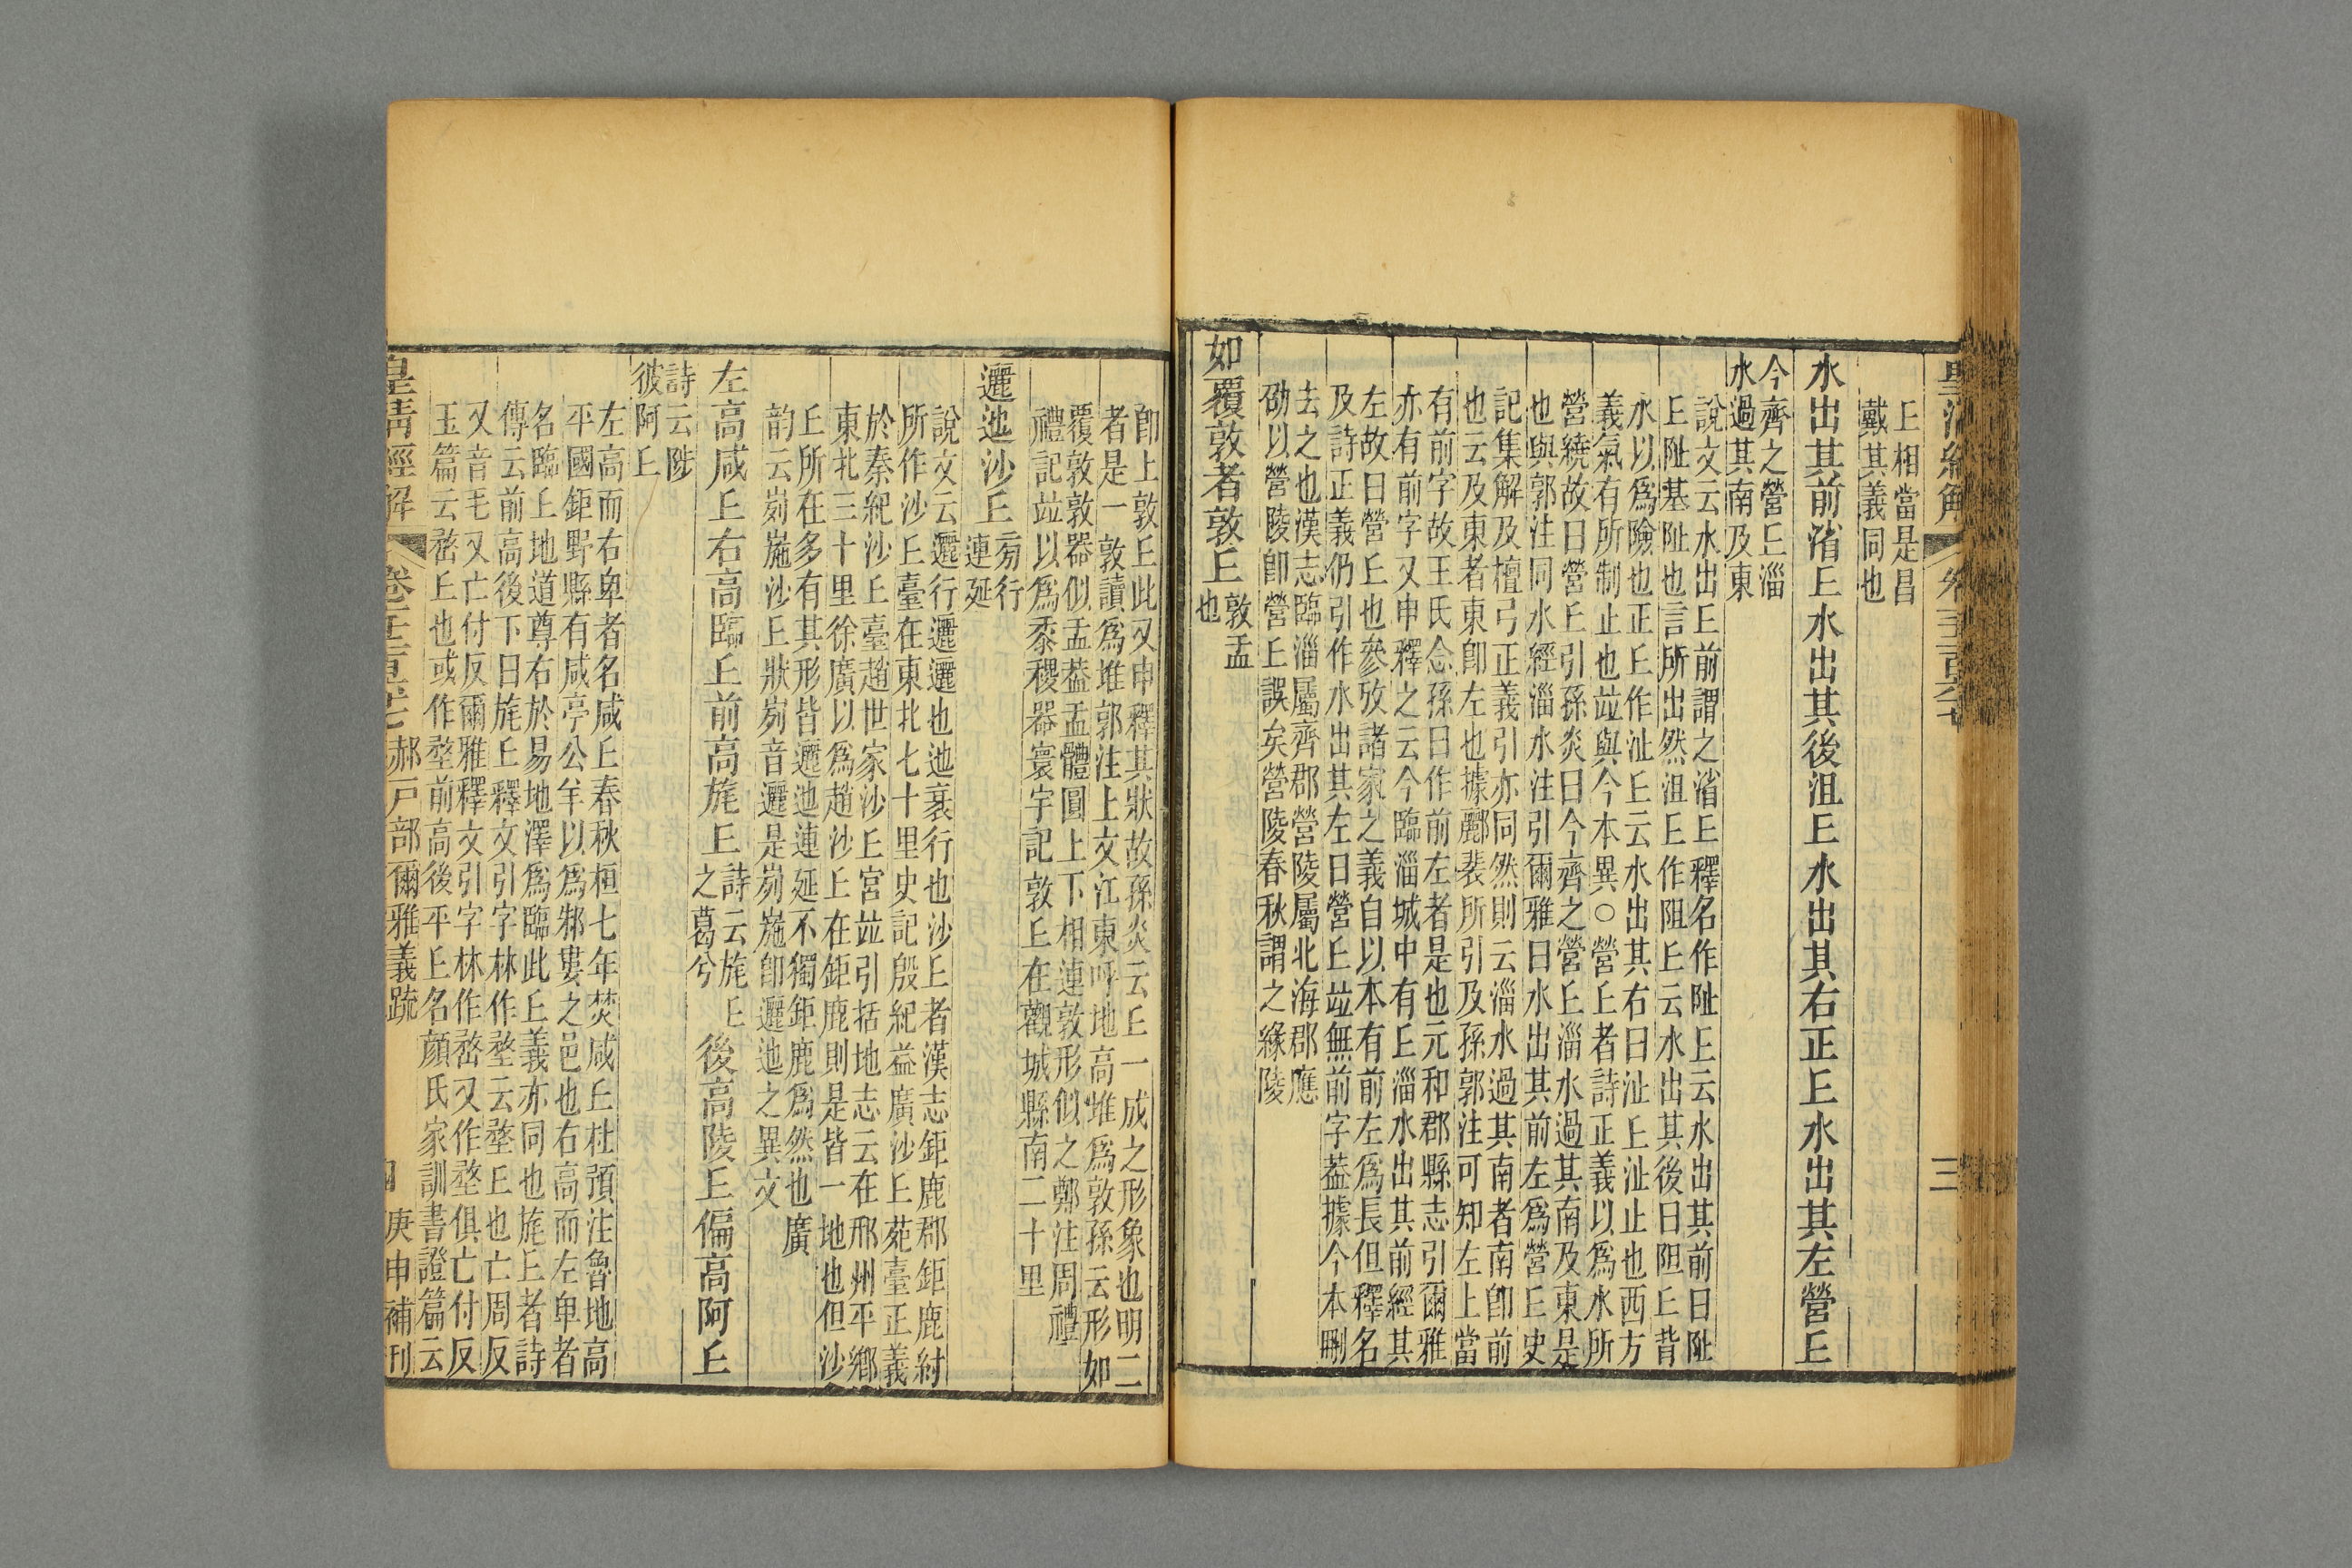 丘相當是昌
戴其義同也
水出其前渻丘水出其後沮丘水出其右正丘水出其左營丘
今齊之營丘淄
水過其南及東
說文云水出丘前謂之渻丘釋名作阯丘云水出其前曰阯
丘阯基阯也言所出然沮丘作阻丘云水出其後曰阻丘背
水以爲險也正丘作沚丘云水出其右曰沚丘沚止也西方
義氣有所制止也竝與今本異○營丘者詩正義以爲水所
營繞故曰營丘引孫炎曰今齊之營丘淄水過其南及東是
也與郭注同水經淄水注引爾雅曰水出其前左爲營丘史
記集解及檀弓正義引亦同然則云淄水過其南者南卽前
也云及東者東卽左也據酈裴所引及孫郭注可知左上當
有前字故王氏念孫曰作前左者是也元和郡縣志引爾雅
亦有前字又申釋之云今臨淄城中有丘淄水出其前經其
左故曰營丘也參攷諸家之義自以本有前左爲長但釋名
及詩正義仍引作水出其左曰營丘竝無前字葢據今本刪
去之也漢志臨淄屬齊郡營陵屬北海郡應
劭以營陵卽營丘誤矣營陵春秋謂之緣陵
如覆敦者敦丘
敦盂
也
卽上敦丘此又申釋其狀故孫炎云丘一成之形象也明二
者是一敦讀爲堆郭注上文江東呼地高堆爲敦孫云形如
覆敦敦器似盂葢盂體圓上下相連敦形似之鄭注周禮
禮記竝以爲黍稷器寰宇記敦丘在觀城縣南二十里
邐迆沙丘
㫄行
連延
說文云邐行邐邐也迆衺行也沙丘者漢志鉅鹿郡鉅鹿紂
所作沙丘臺在東北七十里史記殷紀益廣沙丘苑臺正義
於秦紀沙丘臺趙世家沙丘宮竝引括地志云在邢州平鄉
東北三十里徐廣以爲趙沙丘在鉅鹿則是皆一地也但沙
丘所在多有其形皆邐迆連延不獨鉅鹿爲然也廣
韵云峛崺沙丘狀峛音邐是峛崺卽邐迆之異文
左高咸丘右高臨丘前高旄丘
詩云旄丘
之葛兮
後高陵丘偏高阿丘
詩云陟
彼阿丘
左高而右卑者名咸丘春秋桓七年焚咸丘杜預注魯地高
平國鉅野縣有咸亭公羊以爲邾婁之邑也右高而左卑者
名臨丘地道尊右於易地澤爲臨此丘義亦同也旄丘者詩
傳云前高後下曰旄丘釋文引字林作堥云堥丘也亡周反
又音毛又亡付反爾雅釋文引字林作嵍又作堥俱亡付反
玉篇云嵍丘也或作堥前高後平丘名顏氏家訓書證篇云
皇清經解
郝戶部爾雅義疏
庚申補刊